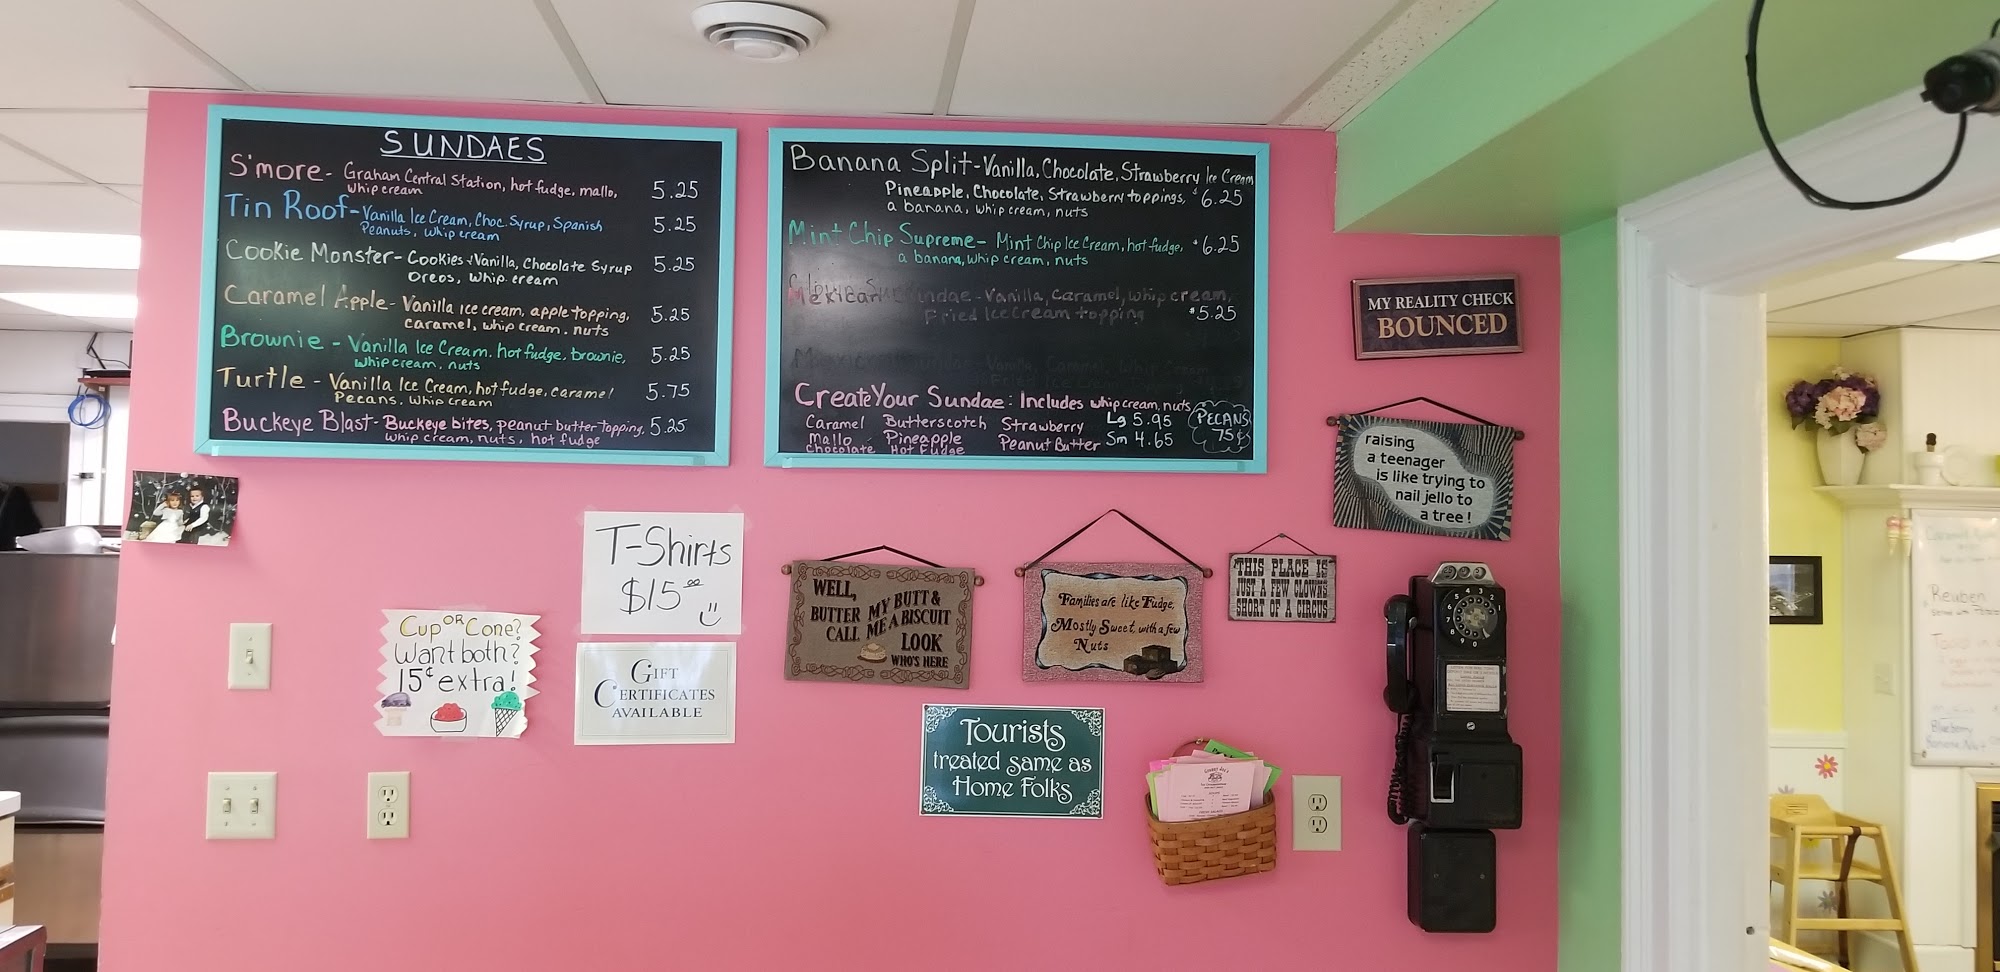 SUNDAES
S'more- Graham Central Station, hot fudge, mallo, 5.25
whip cream
Tin Roof- Vanilla Ice Cream, Choc. Syrup, Spanish 5.25
Peanuts, whip cream
Cookie Monster- Cookies + Vanilla, Chocolate Syrup 5.25
Oreos, whip cream
Caramel Apple- Vanilla ice cream, apple topping, 5.25
caramel, whip cream. nuts
Brownie - Vanilla Ice Cream. hot fudge. brownie, 5.25
whip cream. nuts
Turtle - Vanilla Ice Cream, hot fudge, caramel 5.75
Pecans. whip cream
Buckeye Blast- Buckeye bites, peanut butter topping, 5.25
whip cream, nuts, hot fudge
Banana Split- Vanilla, Chocolate, Strawberry Ice Cream
Pineapple, Chocolate, Strawberry toppings, $6.25
a banana, whip cream, nuts
Mint Chip Supreme- Mint Chip Ice Cream, hot fudge, $6.25
a banana, whip cream, nuts
Mexican Sundae - Vanilla, Caramel, whip cream,
Fried Ice Cream topping $5.25
Create Your Sundae: Includes whip cream, nuts
Caramel Butterscotch Strawberry Lg 5.95
Mallo Pineapple Peanut Butter Sm 4.65
Chocolate Hot Fudge
PECANS
75¢
MY REALITY CHECK
BOUNCED
raising
a teenager
is like trying to
nail jello to
a tree!
T-Shirts
$15.00
Cup OR Cone?
Want both?
15¢ extra!
GIFT
CERTIFICATES
AVAILABLE
WELL,
BUTTER MY BUTT &
CALL ME A BISCUIT
LOOK
WHO'S HERE
Families are like Fudge,
Mostly Sweet, with a few
Nuts
THIS PLACE IS
JUST A FEW CLOWNS
SHORT OF A CIRCUS
Tourists
treated same as
Home Folks
Reuben
Blueberry
Banana Nut